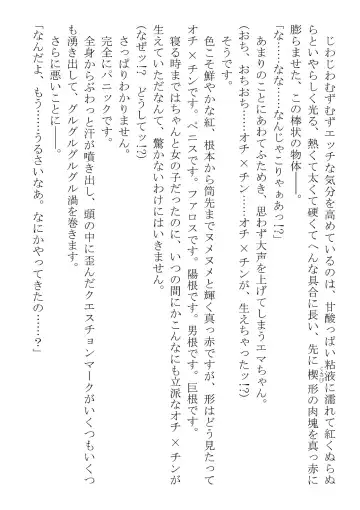 じわじわむずむずエッチな気分を高めているのは、甘酸っぱい粘液に濡れて紅くぬらぬ
らといやらしく光る、熱くて太くて硬くてへんな具合に長い、先に楔形の肉塊を真っ赤に
膨らませた、この棒状の物体――。
「な……なな……なんじゃこりゃぁあっ!?」
　あまりのことにあわてふためき、思わず大声を上げてしまうエマちゃん。
（おち、おちおち……オチ×チン……オチ×チンが、生えちゃったッ!?）
　そうです。
　色こそ鮮やかな紅、根本から筒先までヌメヌメと輝く真っ赤ですが、形はどう見たって
オチ×チン。ペニスです。ファロスです。陽根です。男根です。巨根です。
　寝る時まではちゃんと女の子だったのに、いつの間にかこんなにも立派なオチ×チンが
生えていただなんて、驚かないわけにはいきません。
（なぜッ!?　どうしてッ!?）
　さっぱりわかりません。
　完全にパニックです。
　全身からぶわっと汗が噴き出し、頭の中に歪んだクエスチョンマークがいくつもいくつ
も湧き出して、グルグルグルグル渦を巻きます。
　さらに悪いことに――。
「なんだよ、もう……うるさいなあ。なにかやってきたの……？」